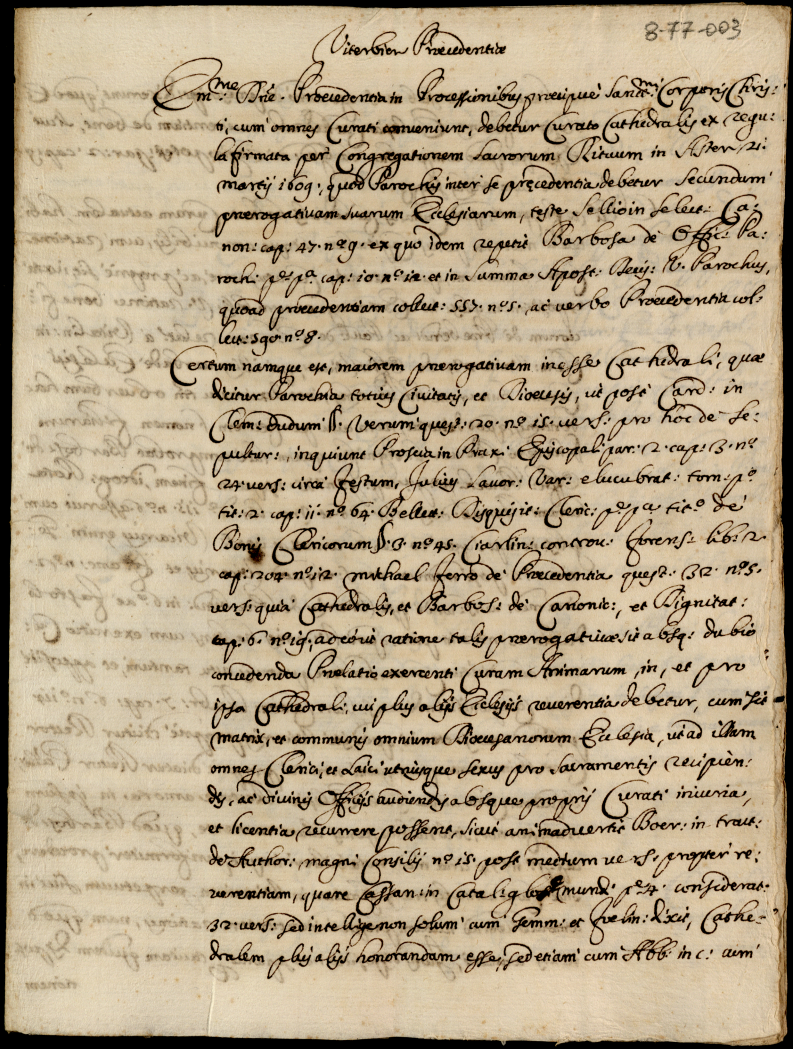 8-77-003
Viterbien Præcedentiæ
Em.me D.ne. Præcedentia in Processionibus præcipuè Sanct.mi Corporis Chris:
ti, cum omnes Curati conveniunt, debetur Curato Cathedralis ex regu:
la firmata per Congregationem Sacrorum Rituum in Asten 21.
martij 1609:, quod Parochis inter se præcedentia debetur secundum
prærogativam suarum Ecclesiarum, teste Sellio in select: Ca:
non: cap: 47. n.o 9. ex quo idem repetit Barbosa de Offic: Pa:
roch: p.e p.a cap: 10. n.o 12. et in Summa Apost: Decis: V. Parochus,
quoad præcedentiam collect: 557. n.o 5., ac verbo Præcedentia col:
lect: 590 n.o 8.
Certum namque est, maiorem prærogativam inesse Cathedrali, quæ
dicitur Parochia totius Civitatis, et Diocesis, ut post Card: in
Clem: dudum §. Verum quest: 20. n.o 15. vers: pro hoc de se:
pultur:, inquiunt Piascia in Prax: Episcopali par: 2. cap: 3. n.o
24. vers: circa festum, Julius Lavor: Var: elucubrat: tom: p.o
tit: 2. cap: 11. n.o 64. Bellet: Disquisit: Cleric: p.e p.a tit.o de
Bonis Clericorum §. 3. n.o 45. Ciarlin: controv: forens: lib: 2.
cap: 204. n.o 12. Michael Ferro de Præcedentia quest: 32. n.o 5.
vers: quia Cathedralis, et Barbos: de Canonic:, et Dignitat:
cap: 6. n.o 19., adeout ratione talis prærogativæ sit absq: dubio
concedenda Prælatio exercenti Curam Animarum, in, et pro
ipsa Cathedrali, cui plus alijs Ecclesijs reverentia debetur, cum sit
matrix, et communis omnium Diocesanorum Ecclesia, ut ad illam
omnes Clerici, et Laici utriusque sexus pro sacramentis recipien:
dis, ac divinis Officijs audiendis absque proprij Curati iniuria,
et licentia recurrere possent, sicut animadvertit Boer: in tract:
de Author: magni Consilij n.o 15. post medium vers: propter re:
verentiam, quare Cassan: in Catalig glor mund: p.e 4. considerat:
32. vers: sed intellige non solum cum femm: et Felin: dixit, Cathe:
dralem plus alijs honorandam esse, sed etiam cum Abb: in c: cum